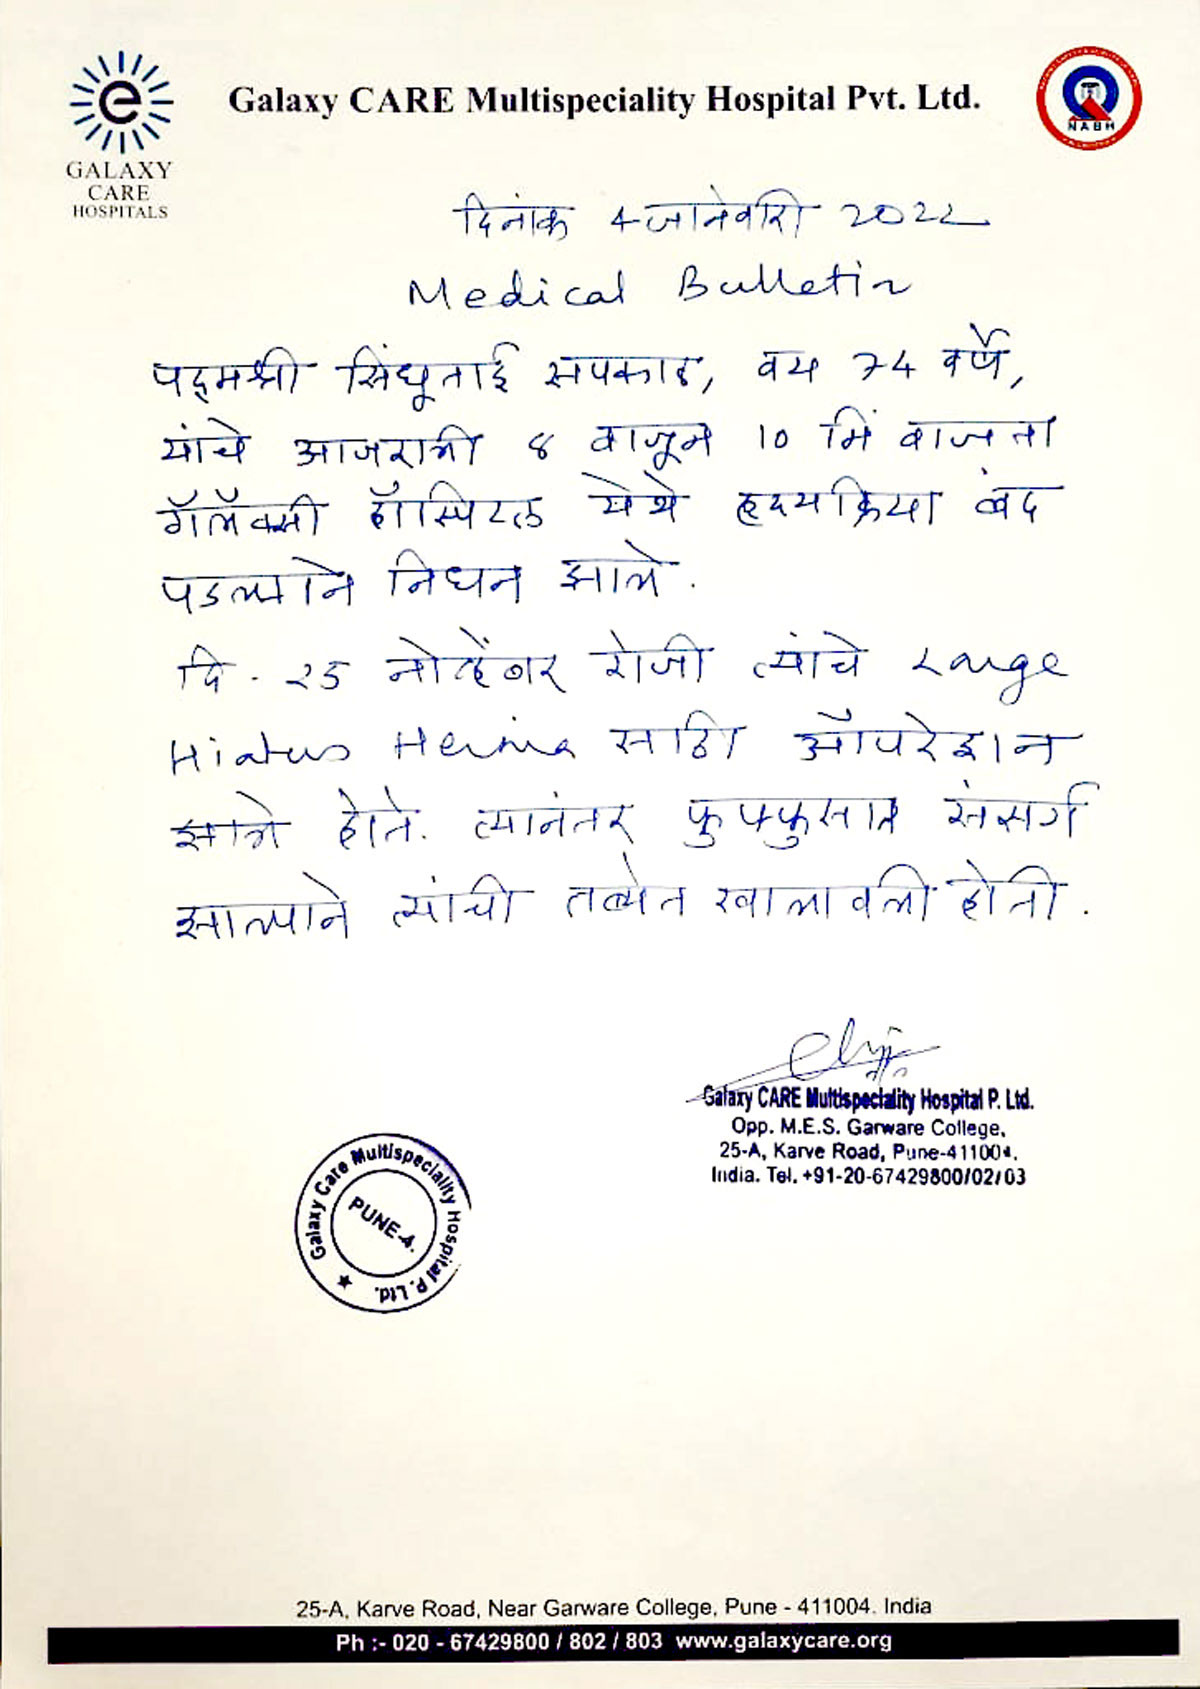 e
GALAXY
CARE
HOSPITALS
Galaxy CARE Multispeciality Hospital Pvt. Ltd.
NABH
दिनांक 4 जानेवारी 2022
Medical Bulletin
पद्मश्री सिंधूताई सपकाळ, वय 74 वर्षे,
यांचे आजरात्री 8 वाजून 10 मिं वाजता
गॅलॅक्सी हॉस्पिटल येथे हृदयक्रिया बंद
पडल्याने निधन झाले.
दि. 25 नोव्हेंबर रोजी त्यांचे Large
Hiatus Hernia साठी ऑपरेशन
झाले होते. त्यानंतर फुफ्फुसात संसर्ग
झाल्याने त्यांची तब्येत खालावली होती.
Galaxy CARE Multispeciality Hospital P. Ltd.
Opp. M.E.S. Garware College,
25-A, Karve Road, Pune-411004.
India. Tel. +91-20-67429800/02/03
Galaxy Care Multispeciality Hospital P. Ltd.
PUNE-4.
25-A, Karve Road, Near Garware College, Pune - 411004. India
Ph :- 020 - 67429800 / 802 / 803 www.galaxycare.org